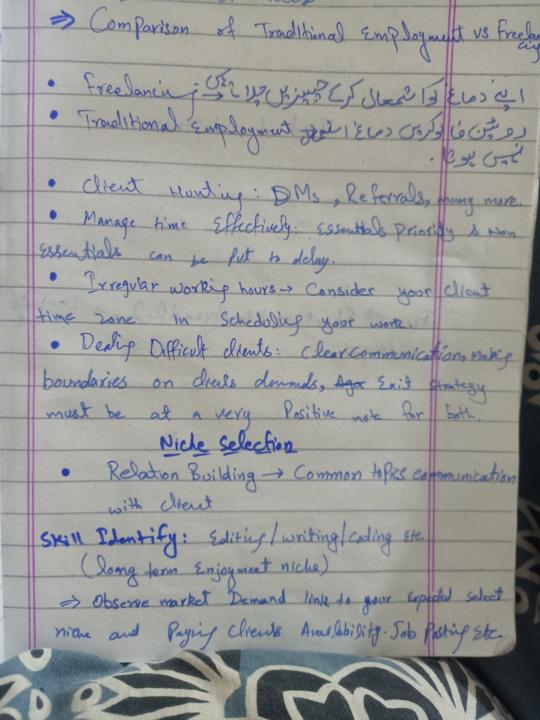 ⇒ Comparison of Traditional Employment vs Freelan
cing
• Freelancing → اپنے دماغ کو استعمال کرکے چیزیں چلانا
• Traditional Employment روٹین کا کام کریں دماغ
نہیں ہوتا۔
• Client Hunting: DMs, Referrals, many more.
• Manage time Effectively: Essentials Priority & Non
Essentials can be put to delay.
• Irregular working hours → Consider your client
time zone in Scheduling your work.
• Dealing Difficult clients: Clear communication, Making
boundaries on clients demands, Exit strategy
must be at a very Positive note for both.
Niche Selection
• Relation Building → Common topics communication
with client
Skill Identify: Editing/writing/coding Etc
(long term Enjoyment niche)
⇒ Observe market Demand link to your Expected select
niche and Paying Clients Availability. Job Posting Etc.